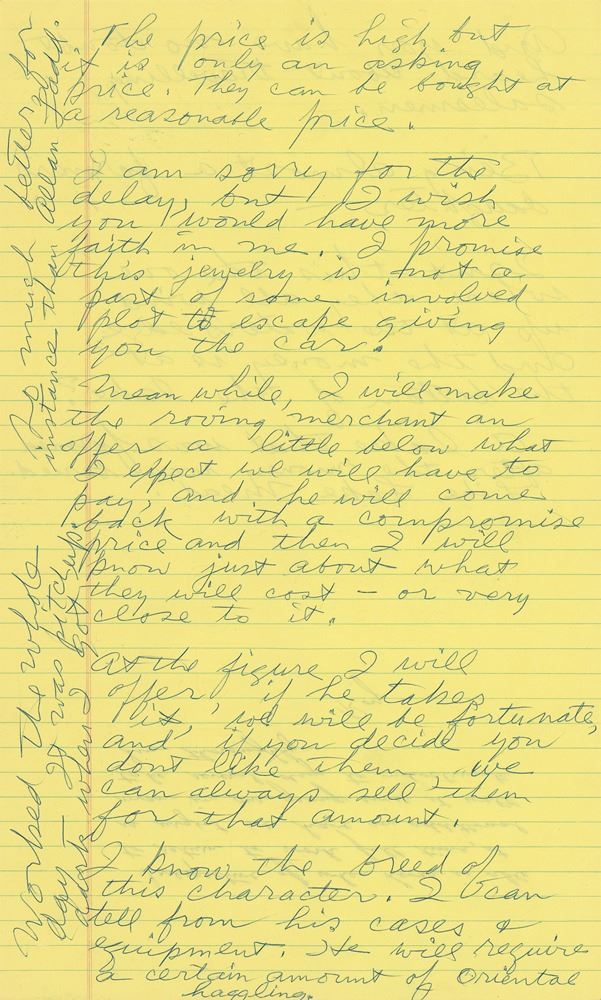 The price is high but
it is only an asking
price. They can be bought at
a reasonable price.
I am sorry for the
delay, but I wish
you would have more
faith in me. I promise
this jewelry is not a
part of some involved
plot to escape giving
you the car.
Mean while, I will make
the roving merchant an
offer a little below what
I expect we will have to
pay, and he will come
back with a compromise
price and then I will
know just about what
they will cost - or very
close to it.
At the figure I will
offer, if he takes
it, we will be fortunate,
and, if you decide you
dont like them, we
can always sell them
for that amount.
I know the breed of
this character. I can
tell from his cases &
equipment. He will require
a certain amount of Oriental
haggling.
Worked the whole
day - It was pitch
dark when I got up.
much better for
instance than Allan Ladd.